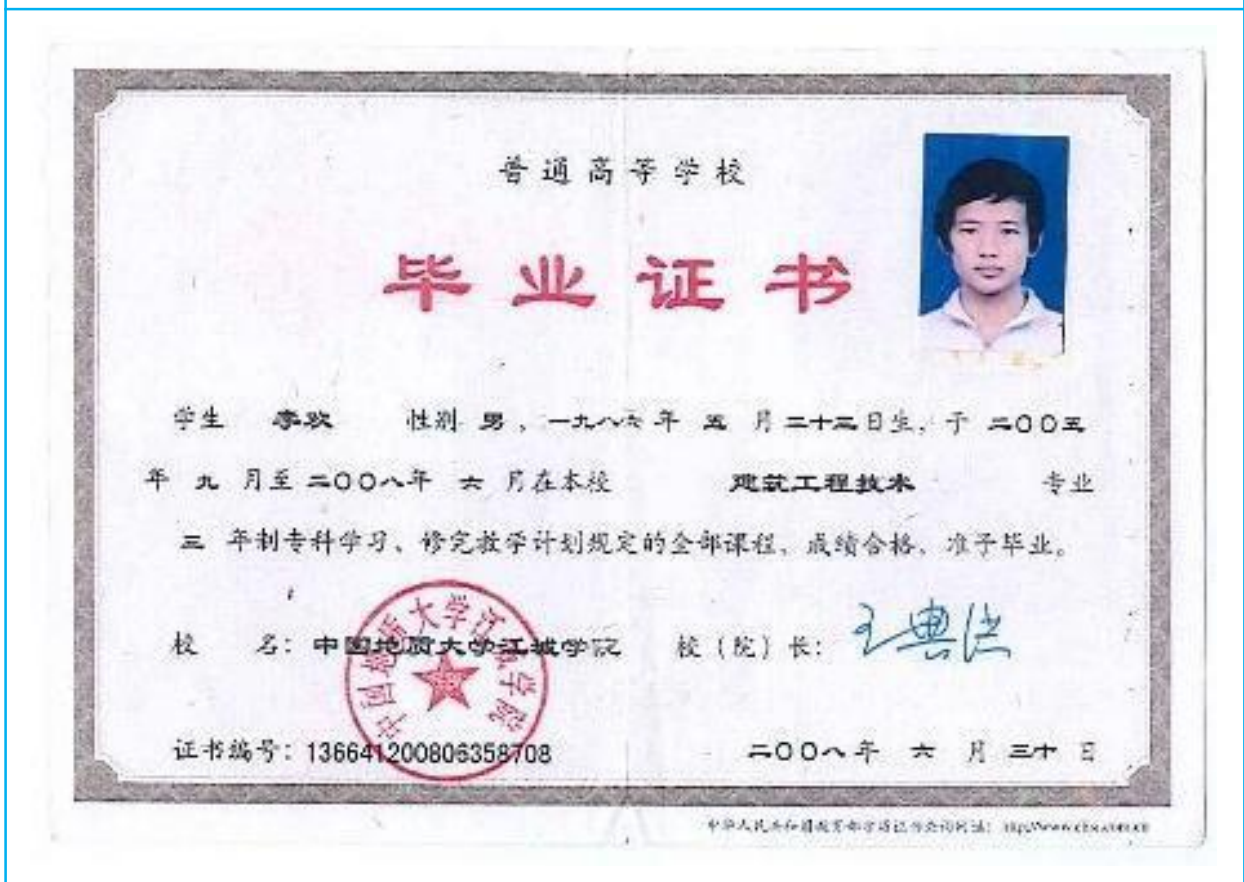 普通高等学校
毕业证书
学生 李欢 性别 男、一九八六年 五 月二十二日生,于 二〇〇五
年 九 月至二〇〇八年 六 月在本校 建筑工程技术 专业
三 年制专科学习、修完教学计划规定的全部课程、成绩合格、准予毕业。
校 名:中国地质大学江城学院 校(院)长:王典洪
中国地质大学江城学院
证书编号:136641200806358708 二〇〇八年 六 月 三十 日
中华人民共和国教育部学历证书查询网址: